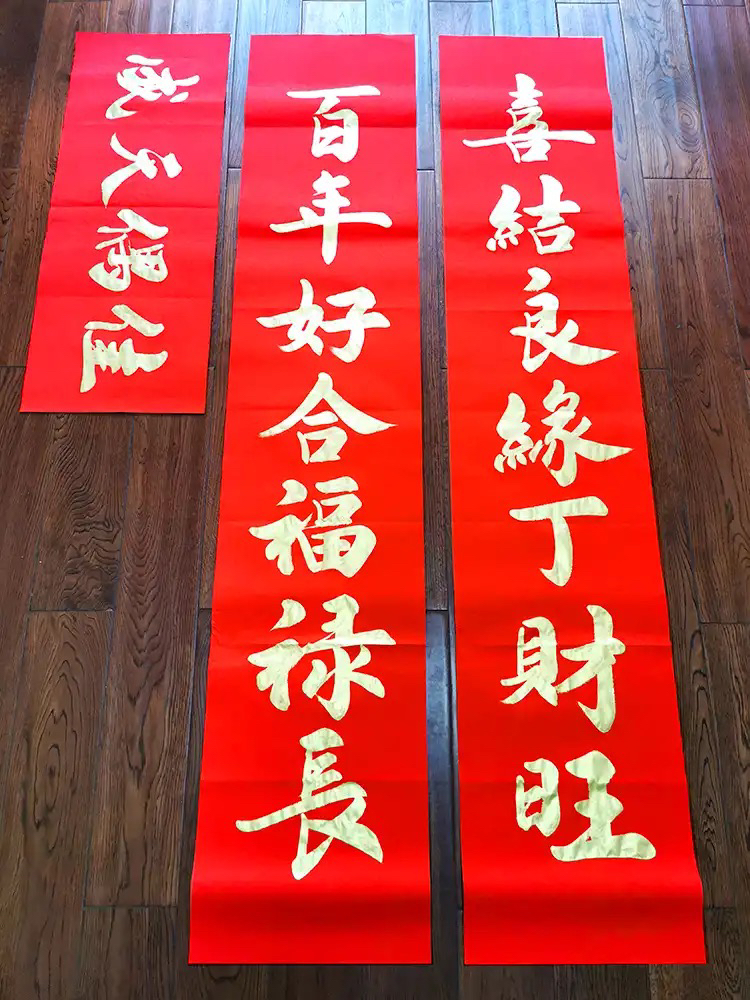 喜結良緣丁財旺
百年好合福禄長
佳偶天成